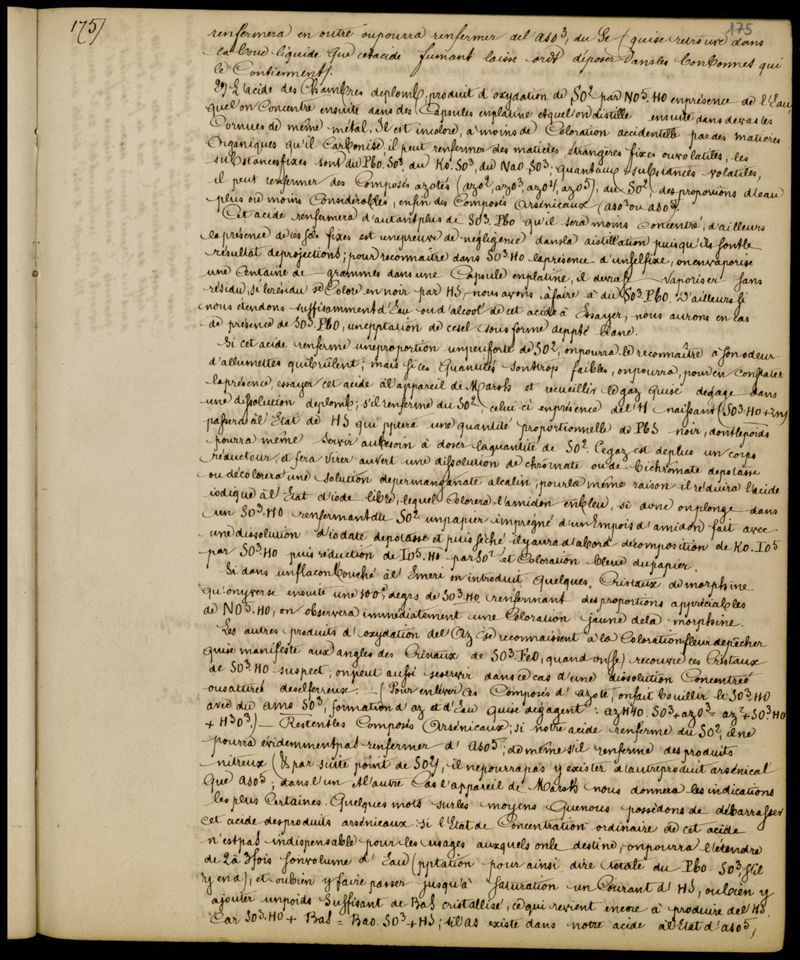 175/ 175
renfermera en outre ou pourra renfermer de l'aso³, du Se (qui se retrouve dans
la boue liquide que cet acide fumant laisse déposer dans les bonbonnes qui
le contiennent).
2°) L'acide des chambres de plomb, produit d'oxydation de SO² par NO⁵.HO en présence de l'Eau
que l'on concentre ensuite dans des capsules en platine et que l'on distille ensuite dans de vastes
cornues de même métal. Il est incolore, à moins de coloration accidentelle par des matières
organiques qu'il carbonise. il peut renfermer des matières étrangères fixes ou volatiles, les
substances fixes sont du PbO.SO³, du KO.SO³, du NaO.SO³, quant aux substances volatiles,
il peut renfermer des composés azotés (azo², azo³, azo⁴, azo⁵), du SO² des proportions d'eau
plus ou moins considérables, enfin des composés arsénicaux (aso³ ou aso⁵).
Cet acide renfermera d'autant plus de SO³.PbO qu'il sera moins concentré, d'ailleurs
la présence de ces sels fixes est une preuve de négligence dans la distillation puisqu'ils sont le
résultat de projections; pour reconnaître dans SO³HO la présence d'un sel fixe, on en vaporise
une centaine de grammes dans une capsule en platine, il devra se vaporiser sans
résidu, si le résidu se colore en noir par HS, nous avons à faire à du SO³.PbO. D'ailleurs si
nous étendons suffisamment d'Eau ou d'alcool de cet acide à essayer, nous aurons en cas
de présence de SO³.PbO, une pptation de ce sel sous forme de ppté blanc.
Si cet acide renferme une proportion un peu forte de SO², on pourra le reconnaître à son odeur
d'allumettes qui brûlent; mais si ces quantités sont trop faibles, on pourra, pour en constater
la présence, essayer cet acide à l'appareil de Marsh et recueillir le gaz qui se dégage dans
une dissolution de plomb; s'il renferme du SO², celui ci en présence de l'H naissant (SO³.HO+Zn)
passera à l'Etat de HS qui pptera une quantité proportionnelle de PbS noir, dont le poids
pourra même servir au besoin à doser la quantité de SO². Ce gaz est de plus un corps
réducteur, et fera virer au vert une dissolution de chromate ou de bichromate de potasse
ou décolorera une solution de permanganate alcalin, pour la même raison il réduira l'acide
iodique à l'Etat d'iode libre, lequel colorera l'amidon en bleu, si donc on plonge dans
un SO³.HO renfermant du SO² un papier imprégné d'un Empois d'amidon fait avec
une dissolution d'iodate de potasse et puis séché il y aura d'abord décomposition de KO.IO⁵
par SO³.HO puis réduction de IO⁵.HO par SO² et coloration bleue du papier.
Si dans un flacon bouché à l'Emeri on introduit quelques cristaux de morphine
qu'on y verse ensuite une 100ⁿᵉ de grs de SO³.HO renfermant des proportions appréciables
de NO⁵.HO, on observera immédiatement une coloration jaune de la morphine.
Les autres produits d'oxydation de l'az se reconnaissent à la coloration fleur de pêcher
qui se manifeste aux angles des cristaux de SO³.FeO, quand on recouvre ces cristaux
de SO³.HO suspect; on peut aussi se servir dans ce cas d'une dissolution concentrée
ou saturée de sel ferreux. — (Pour enlever ces composés d'azote, on fait bouillir le SO³.HO
avec du amo SO³, formation d'az et d'Eau qui se dégagent: azH⁴O.SO³+azo³=az²+SO³HO
+H³O³.) — Restent les composés arsénicaux; si notre acide renferme du SO², il ne
pourra évidemment pas renfermer d'aso⁵; de même s'il renferme des produits
nitreux (& par suite point de SO²), il ne pourra pas y exister d'autre produit arsénical
que aso⁵; dans l'un et l'autre cas l'appareil de Marsh nous donnera les indications
les plus certaines. Quelques mots sur les moyens que nous possédons de débarrasser
cet acide des produits arsénicaux. si l'Etat de concentration ordinaire de cet acide
n'est pas indispensable pour les usages auxquels on le destine, on pourra l'étendre
de 2 à 3 fois son volume d'Eau (pptation pour ainsi dire totale du PbO.SO³, s'il
y en a), et ou bien y faire passer jusqu'à saturation un courant d'HS, ou bien y
ajouter un poids suffisant de BaS cristallisé, ce qui revient encore à produire de l'HS.
Car SO³.HO + BaS = BaO.SO³ + HS; si l'as existe dans notre acide à l'Etat d'aso⁵,